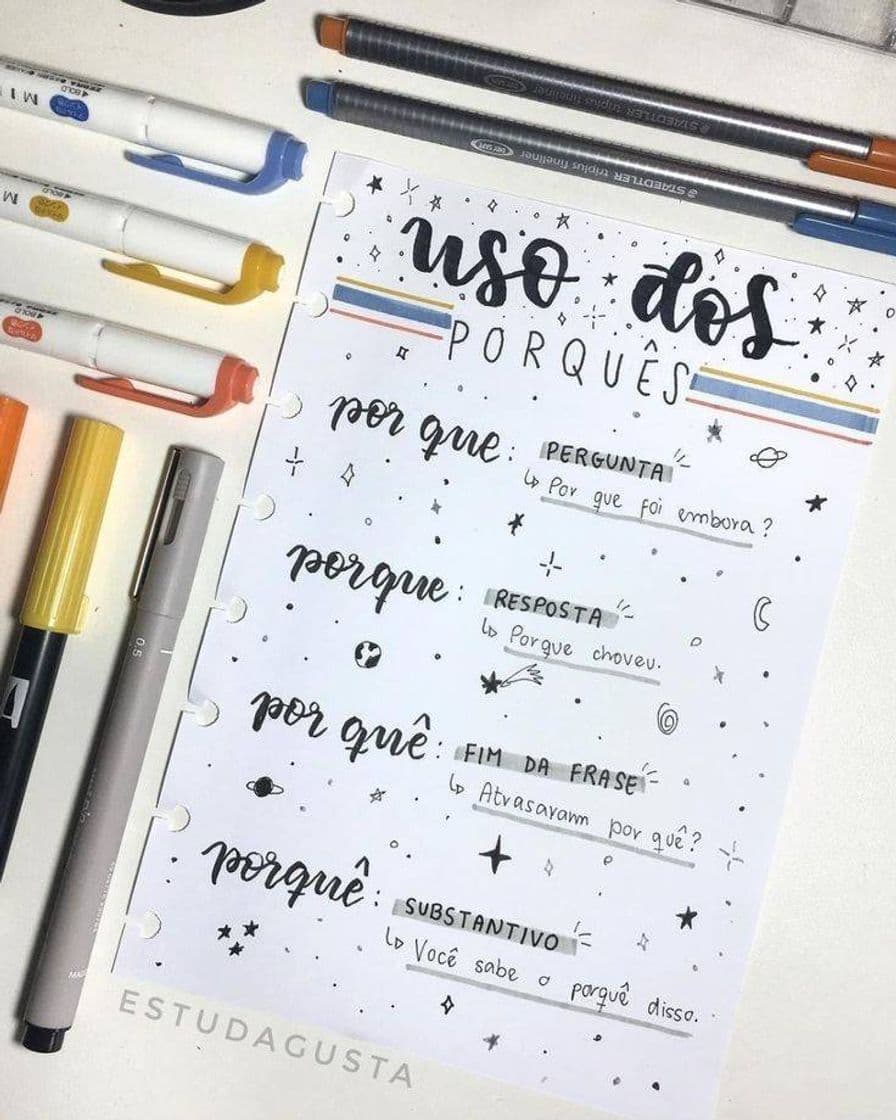 STAEDTLER triplus fineliner
STAEDTLER triplus fineliner
DRY SAFE
BOLD
BOLD
BOLD
uso dos
PORQUÊS
por que: PERGUNTA
Por que foi embora?
porque: RESPOSTA
Porque choveu.
por quê: FIM DA FRASE
Atrasaram por quê?
porquê: SUBSTANTIVO
Você sabe o porquê disso.
0.5
ESTUDAGUSTA